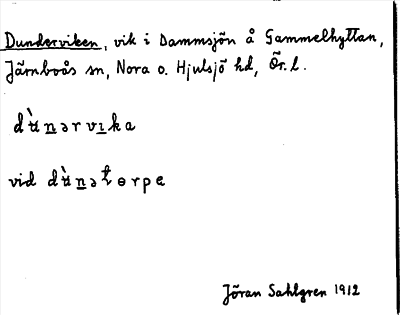 Dunderviken, vik i Dammsjön å Gammelhyttan,
Järnboås sn, Nora o. Hjulsjö hd, Ör. l.
dʉ̀nərvıka
vid dʉ̀nətɵrpe
Jöran Sahlgren 1912